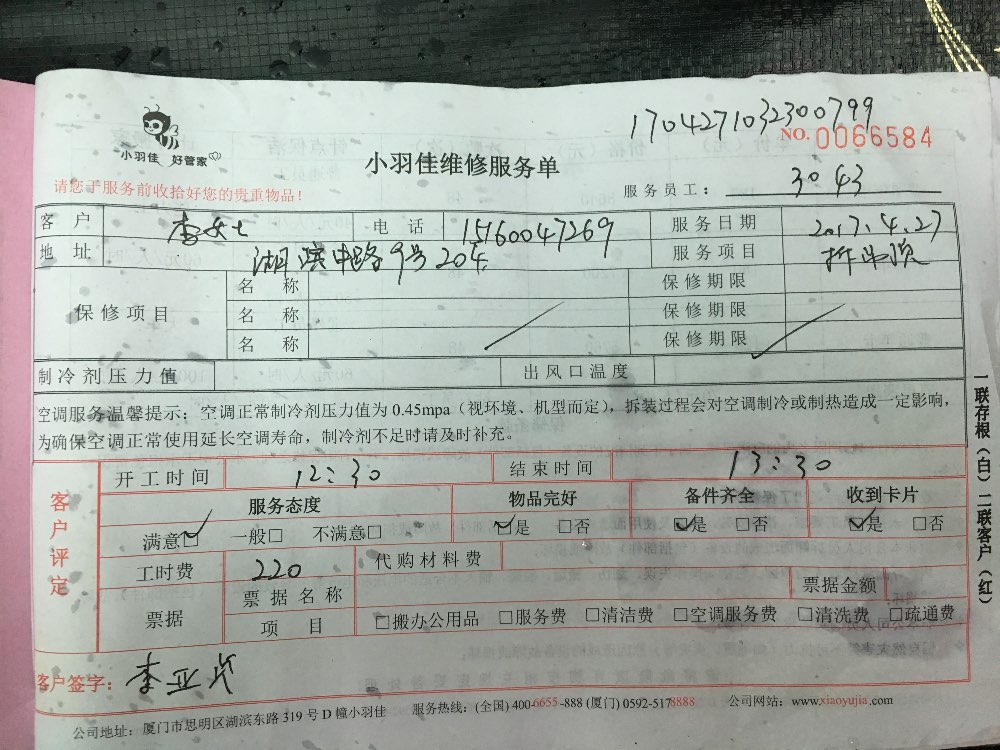 1704271032300799
小羽佳 好管家
NO. 0066584
小羽佳维修服务单
请您于服务前收拾好您的贵重物品！
服务员工： 3043
客户 李女士 电话 15160047269 服务日期 2017.4.27
地址 湖滨中路9号204 服务项目
保修项目 名称 保修期限
名称 保修期限
名称 保修期限
制冷剂压力值 出风口温度
空调服务温馨提示：空调正常制冷剂压力值为0.45mpa（视环境、机型而定），拆装过程会对空调制冷或制热造成一定影响，
为确保空调正常使用延长空调寿命，制冷剂不足时请及时补充。
客户评定
开工时间 12:30 结束时间 13:30
服务态度 物品完好 备件齐全 收到卡片
满意□ 一般□ 不满意□ □是 □否 □是 □否 □是 □否
工时费 220 代购材料费
票据 票据名称 票据金额
项目 □搬办公用品 □服务费 □清洁费 □空调服务费 □清洗费 □疏通费
客户签字：
公司地址：厦门市思明区湖滨东路319号D幢小羽佳 服务热线：(全国) 400-6655-888 (厦门) 0592-5178888 公司网站：www.xiaoyujia.com
一联存根（白）二联客户（红）